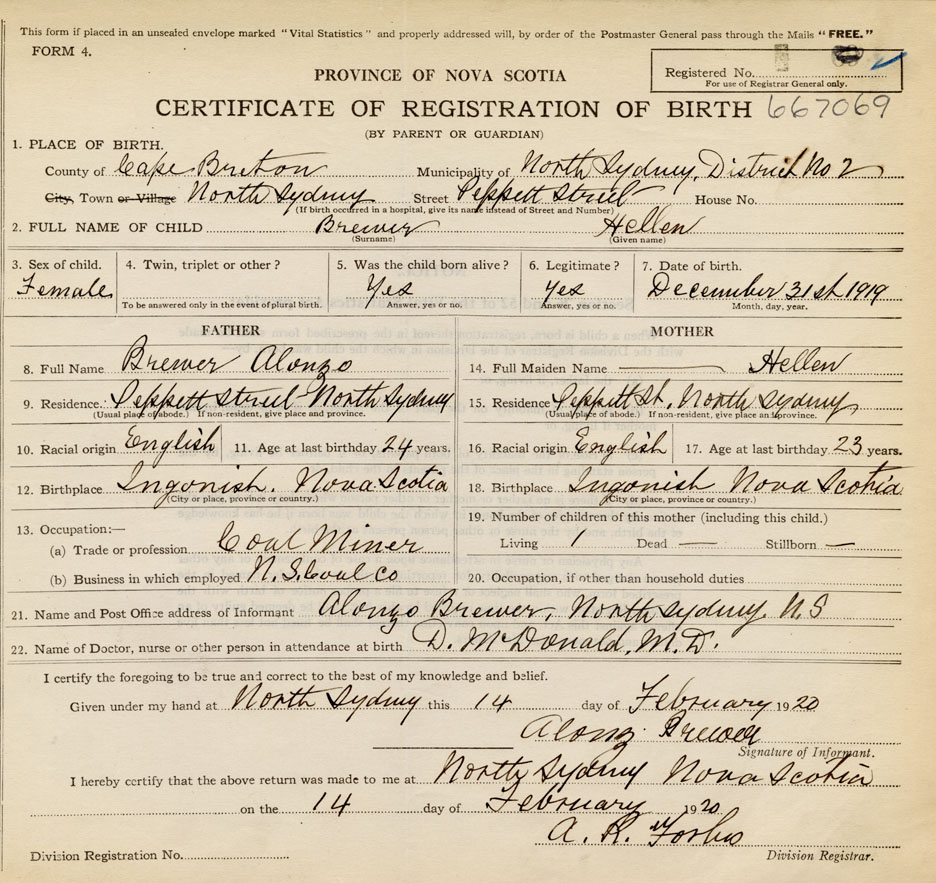 This form if placed in an unsealed envelope marked "Vital Statistics" and properly addressed will, by order of the Postmaster General pass through the Mails "FREE."
FORM 4.
Registered No.
For use of Registrar General only.
PROVINCE OF NOVA SCOTIA
CERTIFICATE OF REGISTRATION OF BIRTH 667069
(BY PARENT OR GUARDIAN)
1. PLACE OF BIRTH.
County of Cape Breton Municipality of North Sydney, District No 2
City, Town or Village North Sydney Street Peppett Street House No.
(If birth occurred in a hospital, give its name instead of Street and Number)
2. FULL NAME OF CHILD Brewer Hellen
(Surname) (Given name)
3. Sex of child. 4. Twin, triplet or other? 5. Was the child born alive? 6. Legitimate? 7. Date of birth.
Female Yes Yes December 31st 1919
To be answered only in the event of plural birth. Answer, yes or no. Answer, yes or no. Month, day, year.
FATHER MOTHER
8. Full Name Brewer Alonzo 14. Full Maiden Name — Hellen
9. Residence. Peppett Street North Sydney 15. Residence Peppett St. North Sydney
(Usual place of abode.) If non-resident, give place and province. (Usual place of abode.) If non-resident, give place and province.
10. Racial origin English 11. Age at last birthday 24 years. 16. Racial origin English 17. Age at last birthday 23 years.
12. Birthplace Ingonish. Nova Scotia 18. Birthplace Ingonish Nova Scotia
(City or place, province or country.) (City or place, province or country.)
13. Occupation:— 19. Number of children of this mother (including this child.)
(a) Trade or profession Coal Miner Living 1 Dead — Stillborn —
(b) Business in which employed N. S. Coal Co 20. Occupation, if other than household duties
21. Name and Post Office address of Informant Alonzo Brewer, North Sydney N S
22. Name of Doctor, nurse or other person in attendance at birth D. McDonald, M.D.
I certify the foregoing to be true and correct to the best of my knowledge and belief.
Given under my hand at North Sydney this 14 day of February 1920
Alonz Brewer
Signature of Informant.
I hereby certify that the above return was made to me at North Sydney Nova Scotia
on the 14 day of February 1920
A. R. Forbes
Division Registration No. Division Registrar.